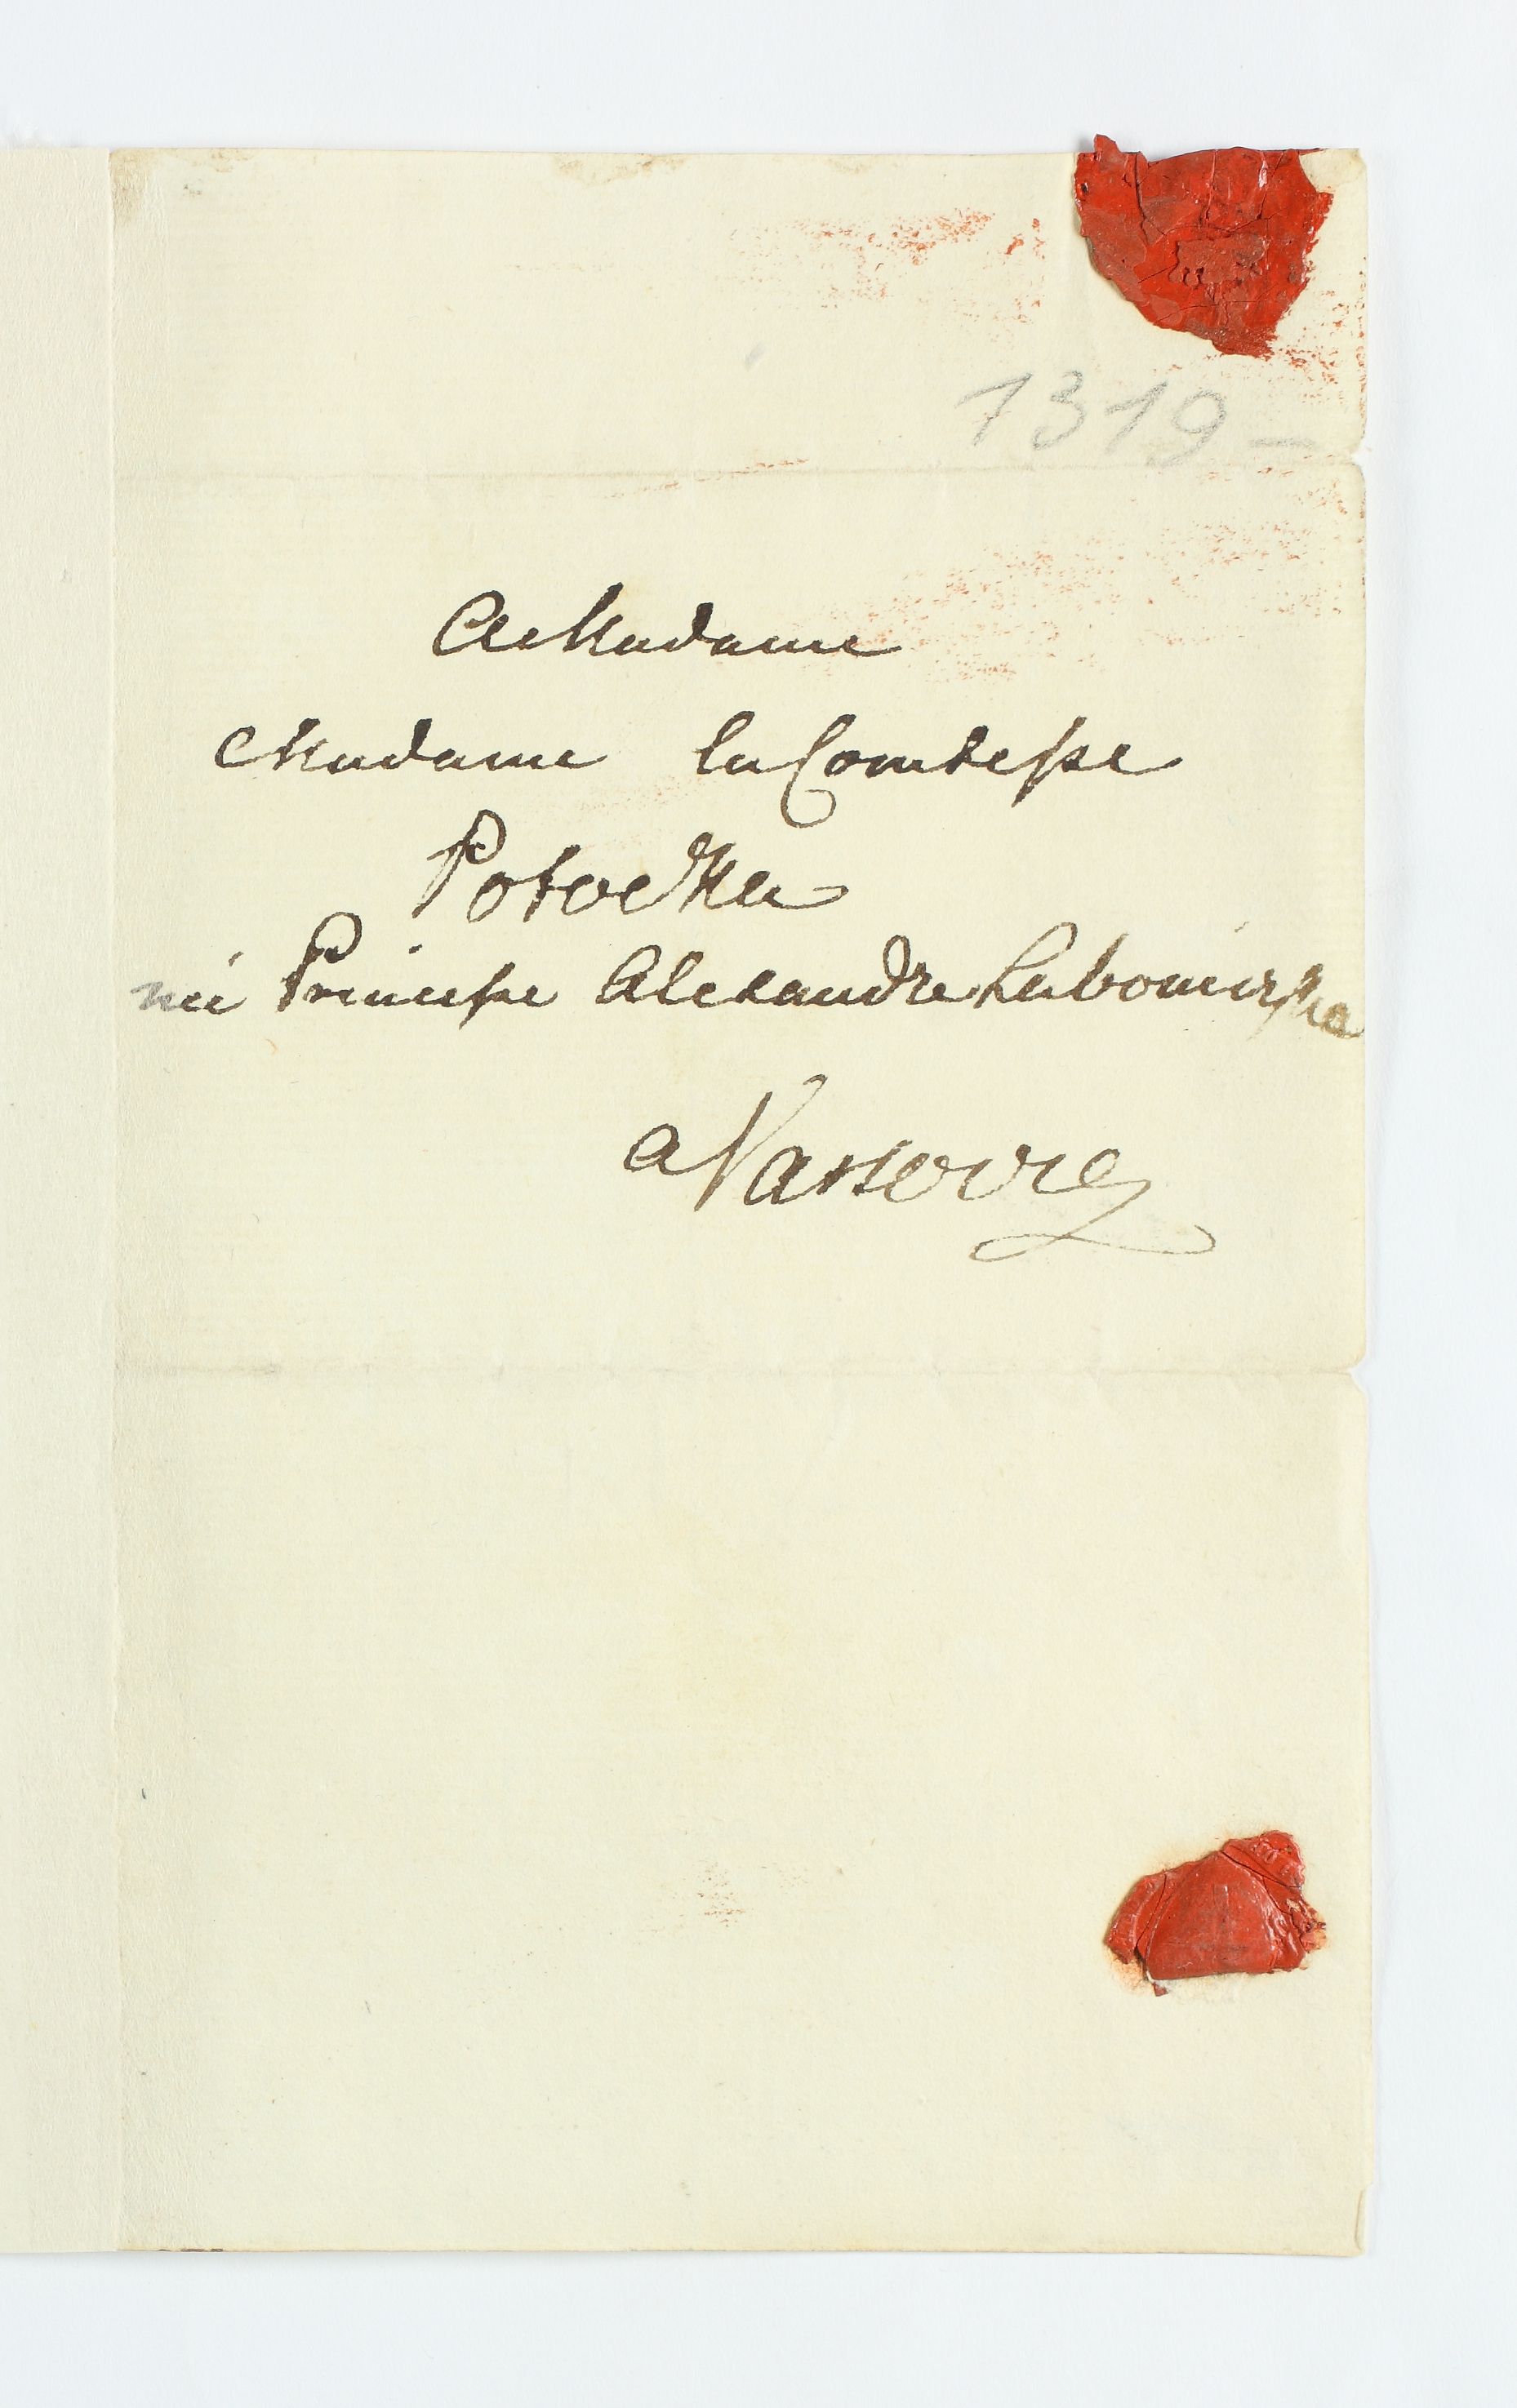 1319 –
A Madame
Madame la Comtesse
Potocka
née Princesse Alexandre Lubomirska
a Varsovie